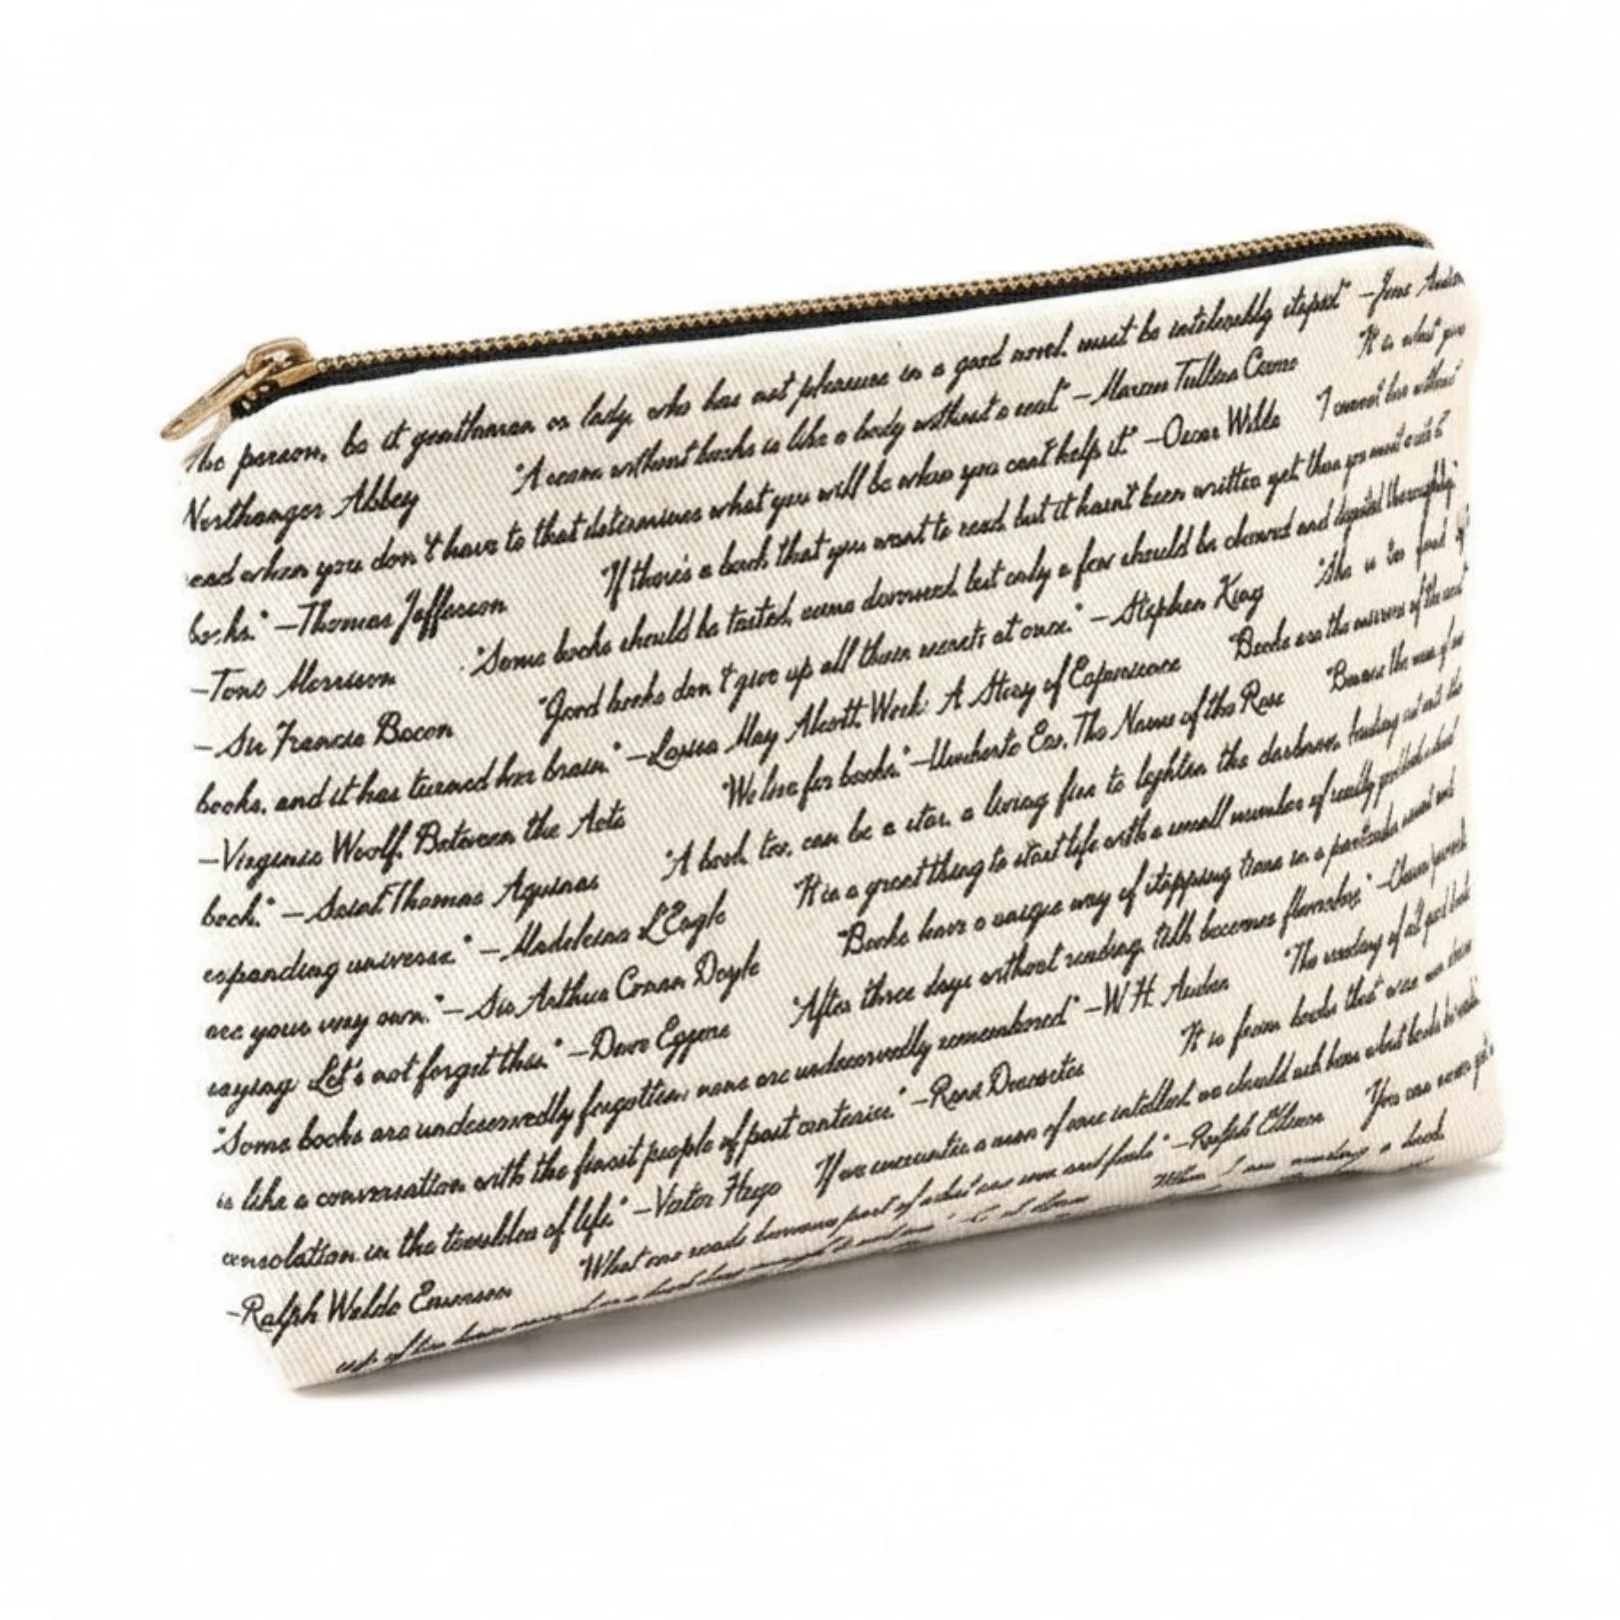 The person, be it gentleman or lady, who has not pleasure in a good novel, must be intolerably stupid" —Jane Austen
Northanger Abbey "A room without books is like a body without a soul" —Marcus Tullius Cicero It is what you
read when you don't have to that determines what you will be when you cant help it." —Oscar Wilde I cannot live without
books." —Thomas Jefferson "If there's a book that you want to read but it hasn't been written yet then you must write it
—Toni Morrison "Some books should be tasted, some devoured, but only a few should be chewed and digested thoroughly."
—Sir Francis Bacon "Good books don't give up all their secrets at once." —Stephen King "She is too fond of
books, and it has turned her brain." —Louisa May Alcott Work: A Story of Experience "Books are the mirrors of the soul"
—Virginia Woolf, Between the Acts "We live for books." —Umberto Eco, The Name of the Rose "Beware the man of one
book." —Saint Thomas Aquinas "A book, too, can be a star, a living fire to lighten the darkness, leading out into the
expanding universe." —Madeleine L'Engle It is a great thing to start life with a small number of really good books which
are your very own." —Sir Arthur Conan Doyle "Books have a unique way of stopping time in a particular moment and
saying Let's not forget this." —Dave Eggers "After three days without reading, talk becomes flavorless" —Chinese proverb
"Some books are undeservedly forgotten; none are undeservedly remembered" —W.H. Auden "The reading of all good books
is like a conversation with the finest people of past centuries." —René Descartes It is from books that wise
consolation in the troubles of life." —Victor Hugo If we encounter a man of rare intellect, we should ask him what books he reads."
—Ralph Waldo Emerson "What one reads becomes part of what one sees and feels" —Ralph Ellison You can never get
When I am reading a book